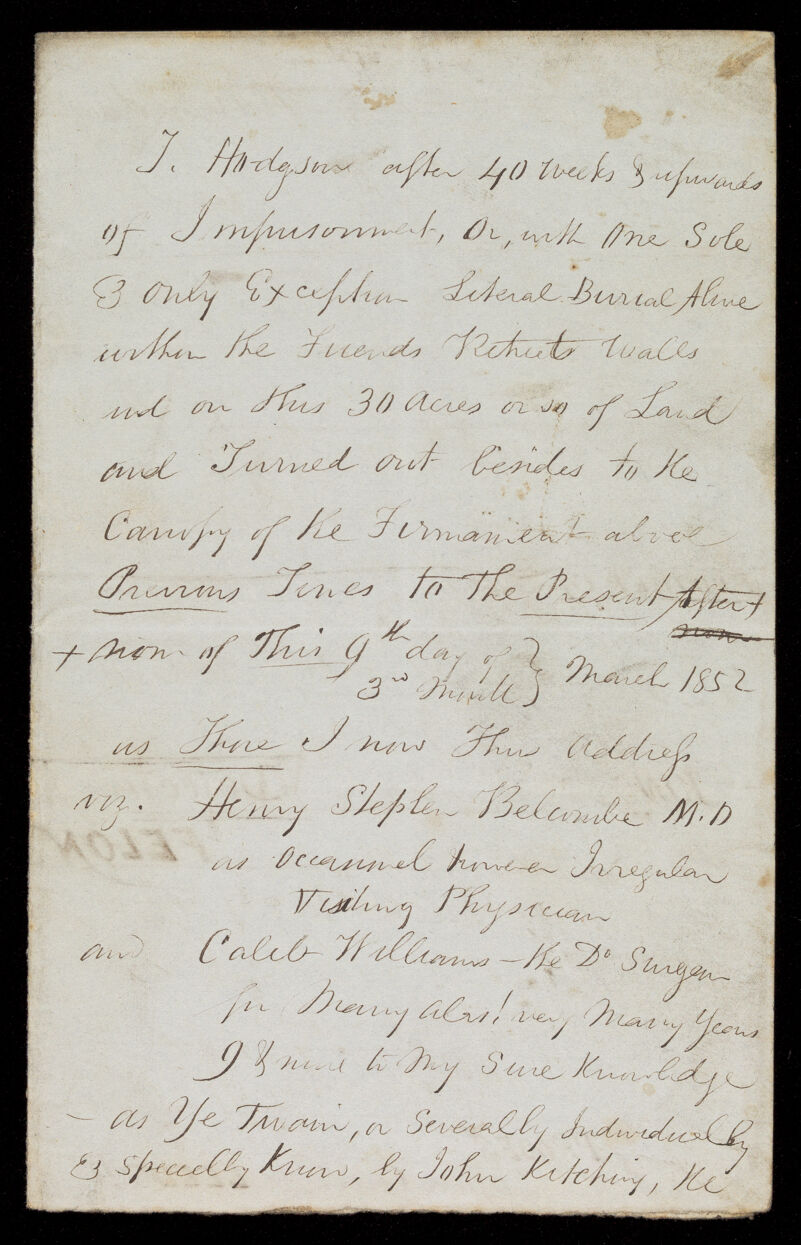 J. Hodgson after 40 weeks & upwards
of Imprisonment, Or, with One Sole
& only Exception Literal Burial Alive
within the Friends Retreats Walls
and on this 30 Acres or so of Land
and Turned out besides to the
Canopy of the Firmament above
Previous Times to The Present After +
noon
+ noon of This 9th day of
3rd Month } March 1852
as Those I now Thus Address
viz. Henry Stephen Belcombe M.D
as Occasional however Irregular
Visiting Physician
and Caleb Williams - the Do Surgeon
for Many alas! very Many Years
9 & more to My Sure Knowledge
- as Ye Twain, or Severally Individually
& Specially Know, by John Kitching, the
FELON